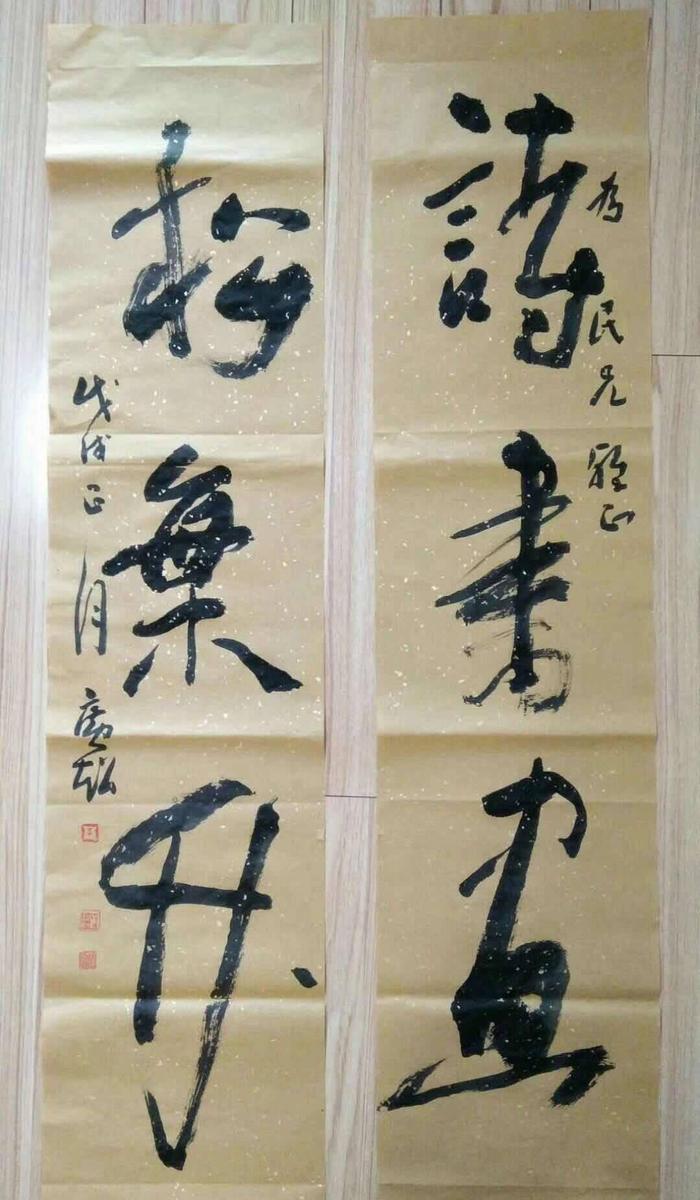 為民兄雅正
詩書畫
松梅竹
戊戌正月廣超